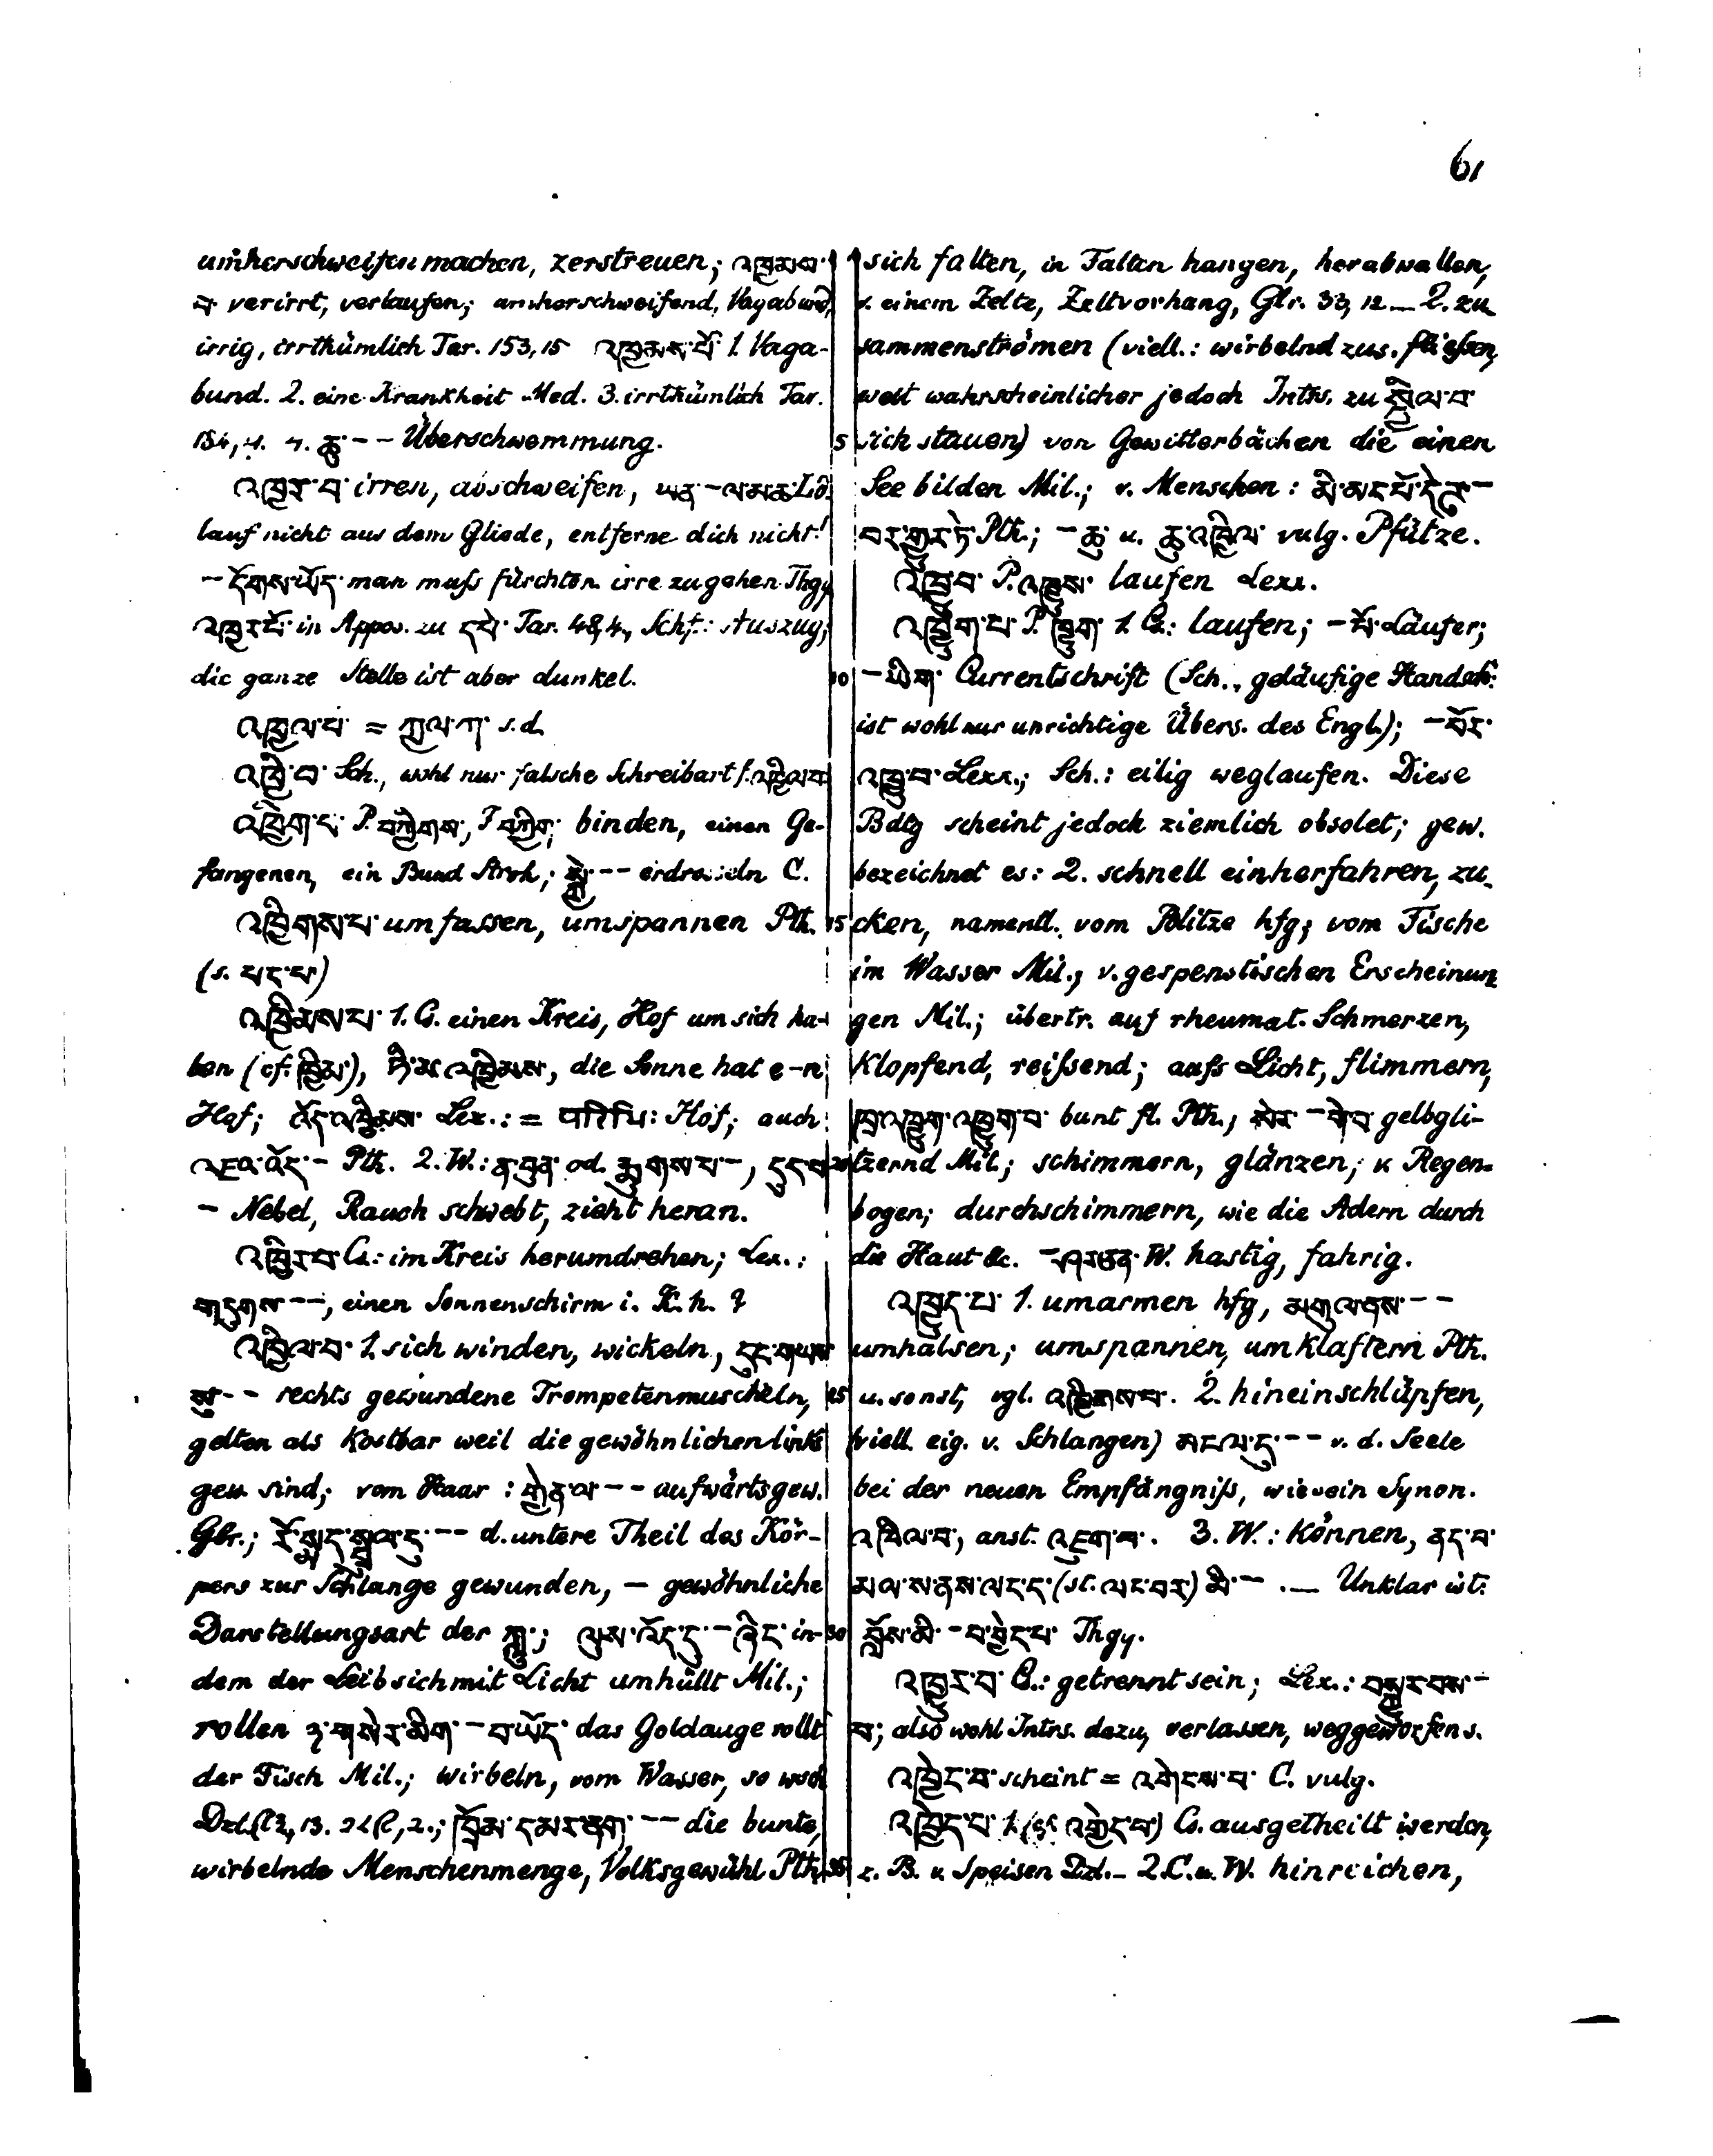 61
umherschweifen machen, zerstreuen; འཁྱམས་
པ verirrt, verlaufen; umherschweifend, Vagabund,
irrig, irrthümlich Tar. 153,15 འཁྱམས་པོ་ 1. Vaga-
bund. 2. eine Krankheit Med. 3. irrthümlich Tar.
154,4. 4. ཆུ་ -- Überschwemmung.
འཁྱར་བ་ irren, abschweifen,
lauf nicht aus dem Gliede, entferne dich nicht!
- དོགས་ཡོད་ man muß fürchten irre zu gehen Thgy
འཁྱར་པོ་ in Appos. zu དཔེ་ Tar. 48,4., Schf.: Auszug;
die ganze Stelle ist aber dunkel.
འཁྱལ་པ་ = ཀྱལ་ཀ་ s.d.
འཁྱི་བ་ Sch., wohl nur falsche Schreibart f. འཁྱིལ་བ
P. བཀྱིགས, F བཀྱིག, binden, einen Ge-
fangenen, ein Bund Stroh; སྐེ་ -- erdrosseln C.
འཁྱིགས་པ་ umfassen, umspannen Pth.
(s. པད་མ་)
འཁྱིམས་པ་ 1. Cs. einen Kreis, Hof um sich ha-
ben (cf. ཁྱིམ་), ཉི་མ་འཁྱིམས་, die Sonne hat e-n
Hof; འོད་འཁྱིམས་ Lex.: = परिधि: Hof; auch
འཇའ་འོད་ - Pth. 2. W.: ན་བུན་ od. སྨུགས་པ་ -, དུད་བ
- Nebel, Rauch schwebt, zieht heran.
འཁྱིར་བ་ Cs.: im Kreis herumdrehen; Lex.:
གདུགས་ --, einen Sonnenschirm i. K. h. ?
འཁྱིལ་བ་ 1. sich winden, wickeln, དུང་གཡས
སུ་ -- rechts gewundene Trompetenmuscheln,
gelten als kostbar weil die gewöhnlichen links
gew. sind; vom Haar: གྱེན་ལ་ -- aufwärts gew.
Glr.; རོ་སྨད་སྦྲུལ་དུ་ -- d. untere Theil des Kör-
pers zur Schlange gewunden, - gewöhnliche
Darstellungsart der ཀླུ་; ལུས་འོད་དུ་ - ཞིང་ in-
dem der Leib sich mit Licht umhüllt Mil.;
rollen ཉ་གསེར་མིག་ - བ་ཡོད་ das Goldauge rollt
der Fisch Mil.; wirbeln, vom Wasser, so wohl
Dzl. 13. ཁྲོམ་དམར་ནག་ -- die bunte,
wirbelnde Menschenmenge, Volksgewühl Pth.
sich falten, in Falten hangen, herabwallen,
v. einem Zelte, Zeltvorhang, Glr. 33, 12 — 2. zu
sammenströmen (viell.: wirbelnd zus. fließen,
weit wahrscheinlicher jedoch Intrs. zu སྐྱིལ་བ་
5 sich stauen) von Gewitterbächen die einen
See bilden Mil.; v. Menschen: མི་མང་པོ་དེར་ -
བར་གྱུར་ཏེ་ Pth.; - ཆུ་ u. ཆུ་འཁྱིལ་ vulg. Pfütze.
འཁྱུ་བ་ P. འཁྱུས་ laufen Lexx.
འཁྱུག་པ་ P. ཁྱུག་ 1. Cs.: laufen; - པོ་ Läufer;
10 - ཡིག་ Currentschrift (Sch., geläufige Handsch.
ist wohl nur unrichtige Übers. des Engl.); - བོར་
འཁྱུ་བ་ Lexx.; Sch.: eilig weglaufen. Diese
Bdtg scheint jedoch ziemlich obsolet; gew.
bezeichnet es: 2. schnell einherfahren, zu-
15 cken, namentl. vom Blitze hfg; vom Fische
im Wasser Mil.; v. gespenstischen Erscheinun
gen Mil.; übertr. auf rheumat. Schmerzen,
klopfend, reißend; aufs Licht, flimmern,
ཁྲ་འཁྱུག་འཁྱུག་པ་ bunt fl. Pth., སེར་ - གེ་བ gelbgli-
20 tzernd Mil.; schimmern, glänzen; v. Regen-
bogen; durchschimmern, wie die Adern durch
die Haut &c. W. hastig, fahrig.
འཁྱུད་པ་ 1. umarmen hfg, མགུལ་ནས་ --
umhalsen; umspannen, umklaftern Pth.
25 u. sonst, vgl. འཁྱིགས་པ་. 2. hineinschlüpfen,
(viell. eig. v. Schlangen) མངལ་དུ་ -- v. d. Seele
bei der neuen Empfängniß, wie sein Synon.
འཁྲིལ་བ་, anst. འཇུག་པ་. 3. W.: können, ནད་པ་
མལ་ས་ནས་ལང་ང་ (st. ལང་བར་) མི་ - . — Unklar ist:
30 བློས་མི་ - བ་བྱེད་པ་ Thgy.
འཁྱུར་བ་ Cs.: getrennt sein; Lex.: བསྐྱུར་བས་ -
བ་; also wohl Intrs. dazu, verlassen, weggeworfen s.
འཁྱེང་བ་ scheint = འགེངས་པ་ C. vulg.
འཁྱེད་པ་ 1. (cf. འགྱེད་པ་) Cs. ausgetheilt werden,
35 z. B. v. Speisen Dzl. - 2. C. u. W. hinreichen,